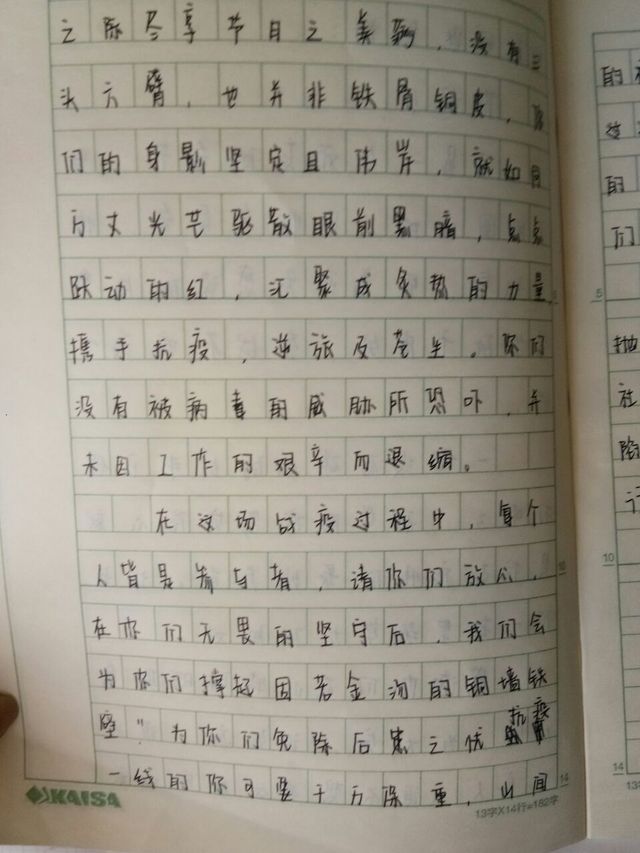 之际尽享节日之美丽，没有三
头六臂，也并非铁骨铜皮，你
们的身影坚定且伟岸，就如同
万丈光芒驱散眼前黑暗，点点
跃动的红，汇聚成炙热的力量
携手抗疫，逆旅及苍生。你们
没有被病毒的威胁所恐吓，并
未因工作的艰辛而退缩。
在这场战疫过程中，每个
人皆是参与者，请你们放心，
在你们无畏的坚守后，我们会
为你们撑起因若金汤的铜墙铁
壁"为你们免除后患之忧 抗疫
一线的你可要千万保重，山间
KAISA
13字X14行=182字
14
的
的
们
5
抛
社
陷
10
14
13